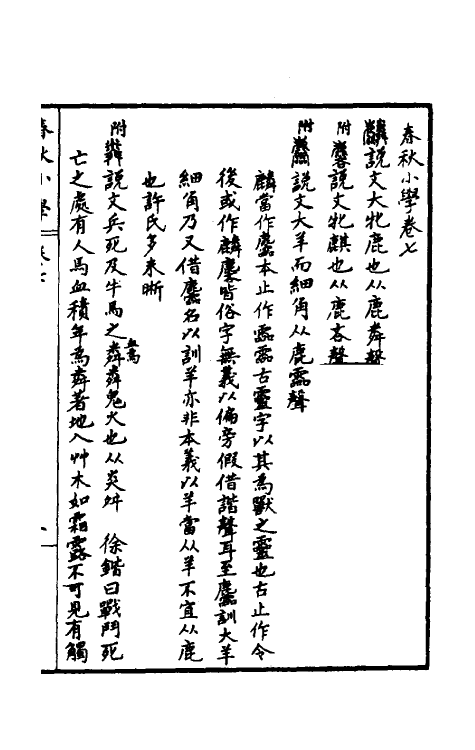 春秋小學卷七
麟說文大牝鹿也从鹿粦聲
附麐說文牝麒也从鹿吝聲
附麢說文大羊而細角从鹿霝聲
麟當作麢本止作霝霝古靈字以其為獸之靈也古止作令
後或作麟麐皆俗字無義以偏旁假借諧聲耳至麢訓大羊
細角乃又借麢名以訓羊亦非本義以羊當从羊不宜从鹿
也許氏多未晰
附粦說文兵死及牛馬之血為粦粦鬼火也从炎舛　徐鍇曰戰鬥死
亡之處有人馬血積年為粦著地入艸木如霜露不可見有觸
春秋小學　卷七　一